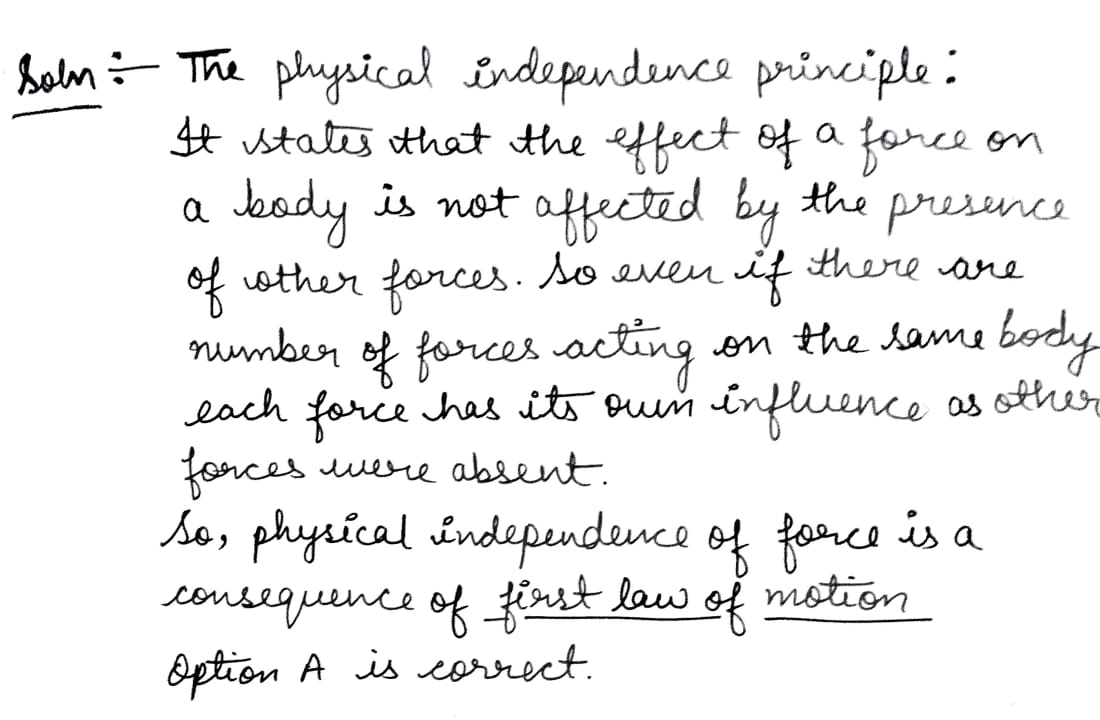 Soln :- The physical independence principle :
It states that the effect of a force on
a body is not affected by the presence
of other forces. So even if there are
number of forces acting on the same body
each force has its own influence as other
forces were absent.
So, physical independence of force is a
consequence of first law of motion
Option A is correct.